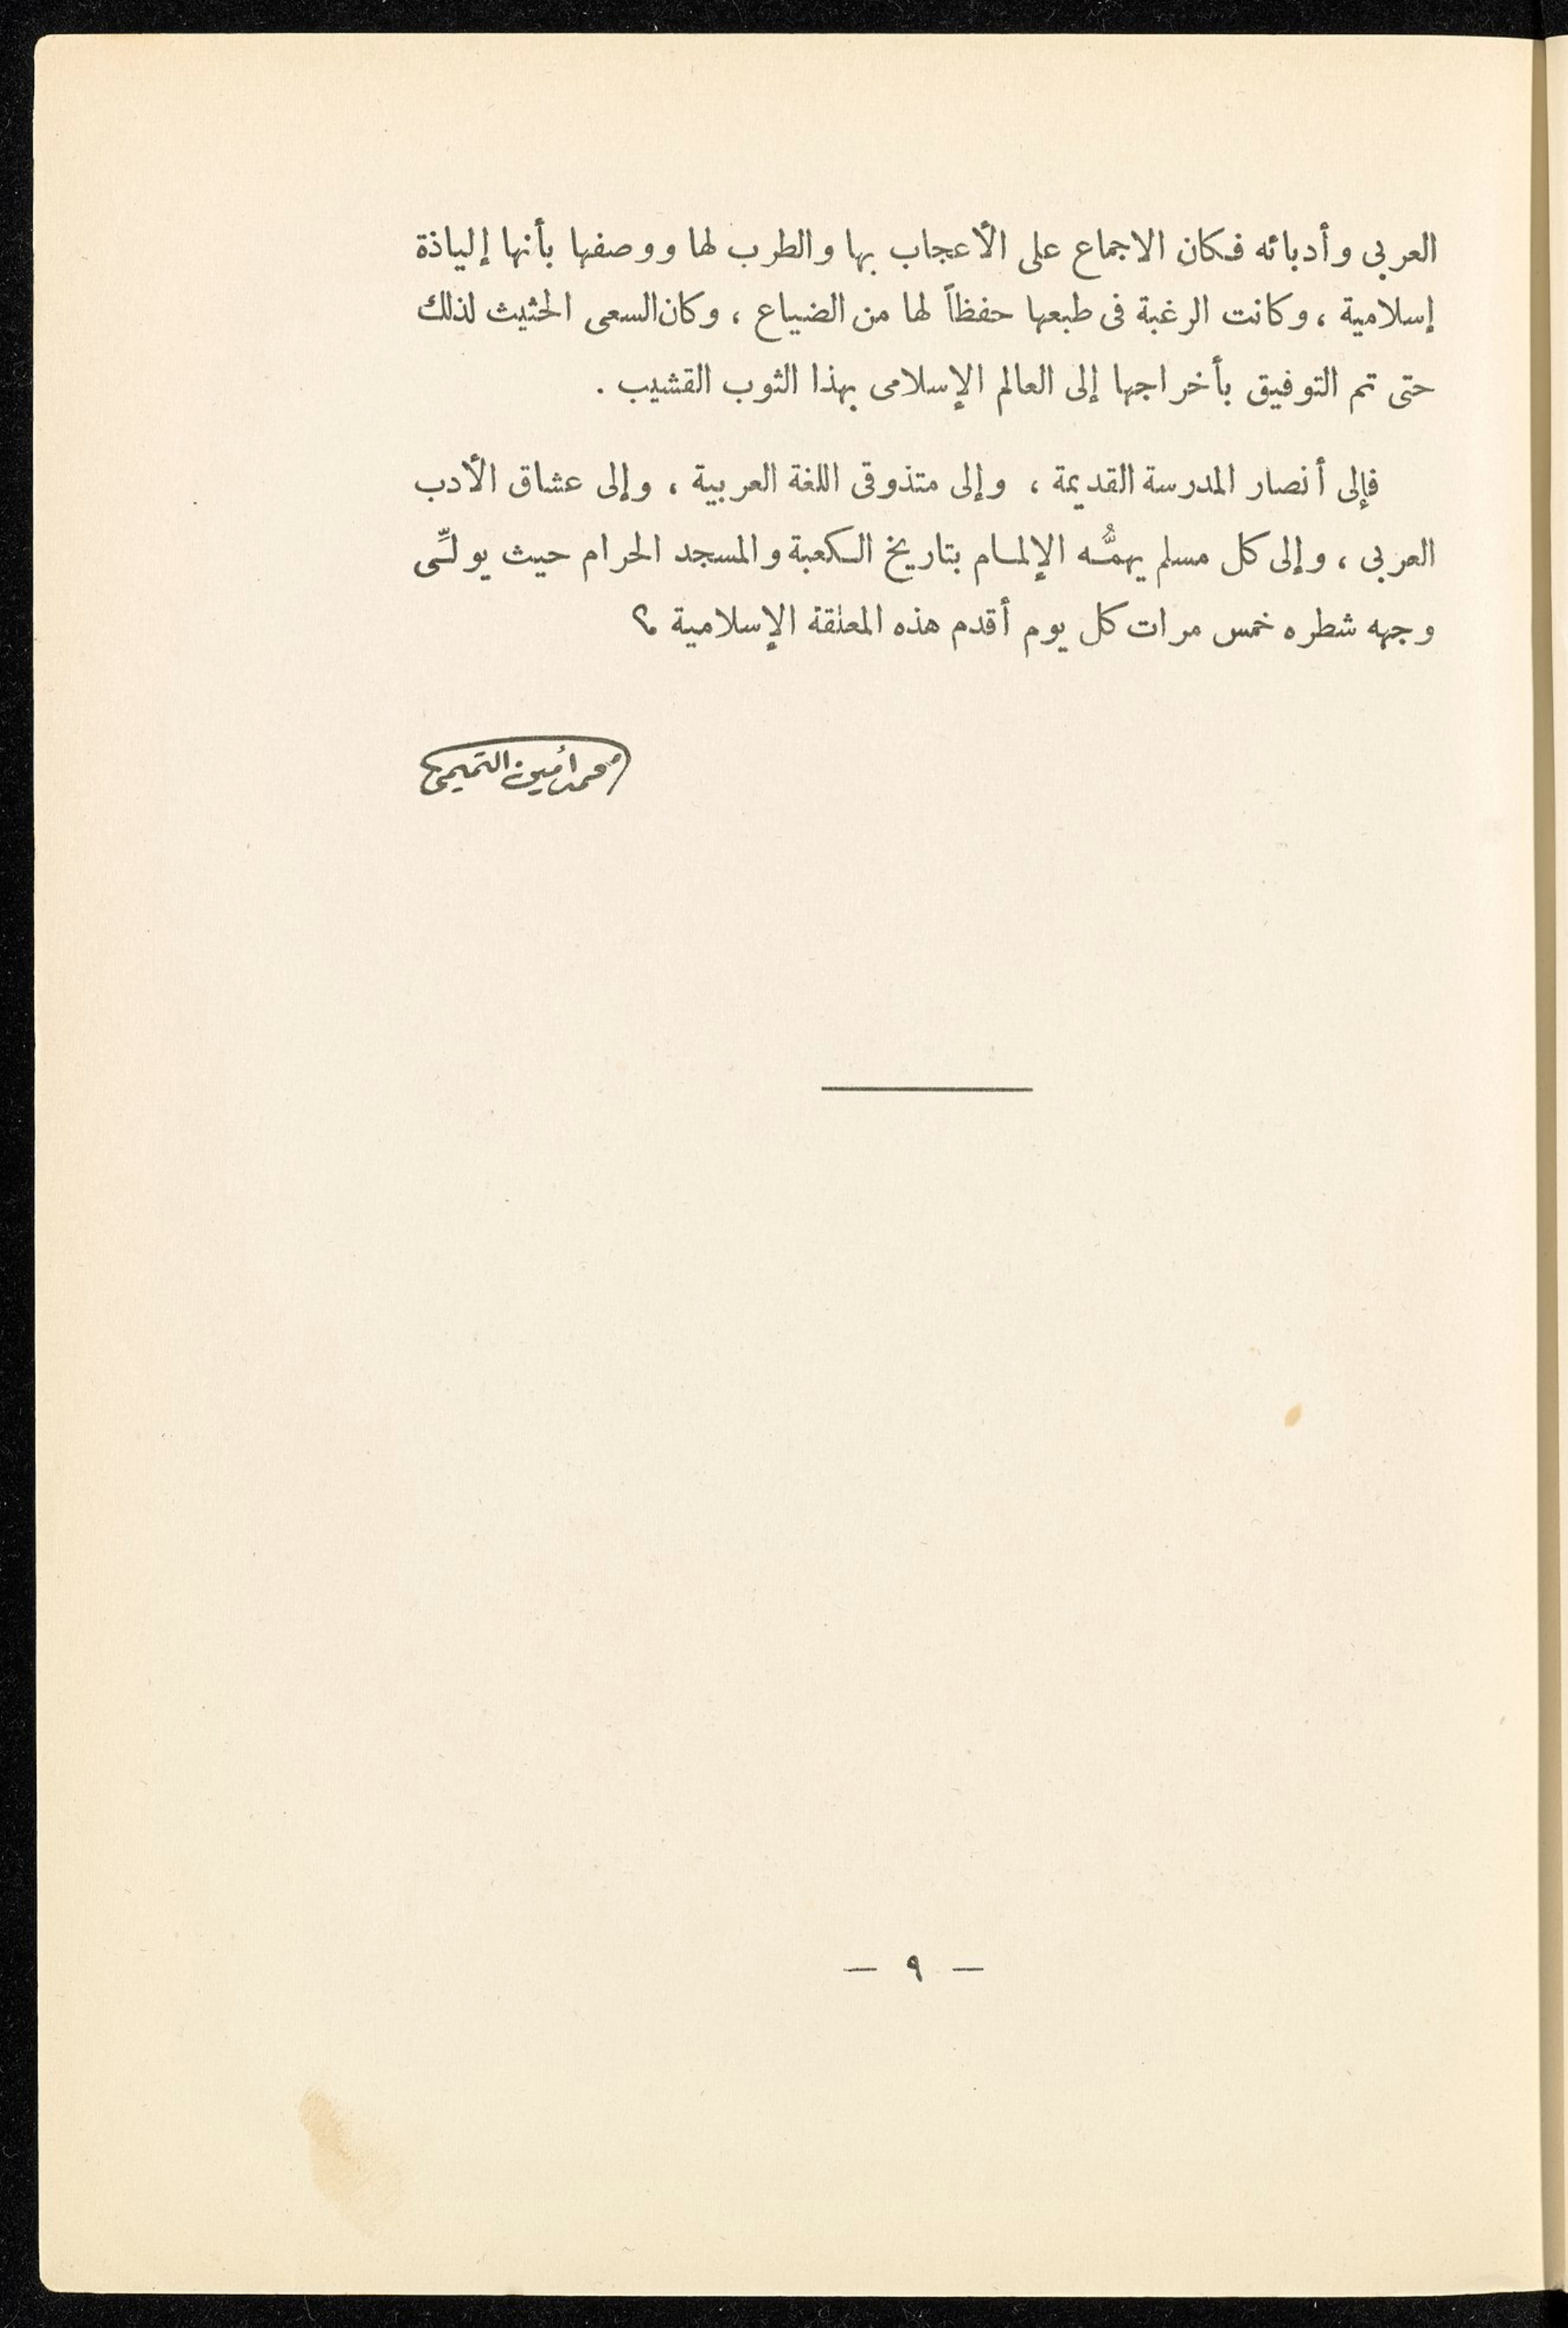 العربى وأدبائه فكان الاجماع على الأعجاب بها والطرب لها ووصفها بأنها إلياذة
إسلامية ، وكانت الرغبة فى طبعها حفظاً لها من الضياع ، وكان السعى الحثيث لذلك
حتى تم التوفيق بأخراجها إلى العالم الإسلامى بهذا الثوب القشيب .
فإلى أنصار المدرسة القديمة ، وإلى متذوقى اللغة العربية ، وإلى عشاق الأدب
العربى ، وإلى كل مسلم يهمُّه الإلمام بتاريخ الكعبة والمسجد الحرام حيث يولِّى
وجهه شطره خمس مرات كل يوم أقدم هذه المعلقة الإسلامية ؟
محمد أمين التميمى
— ٩ —